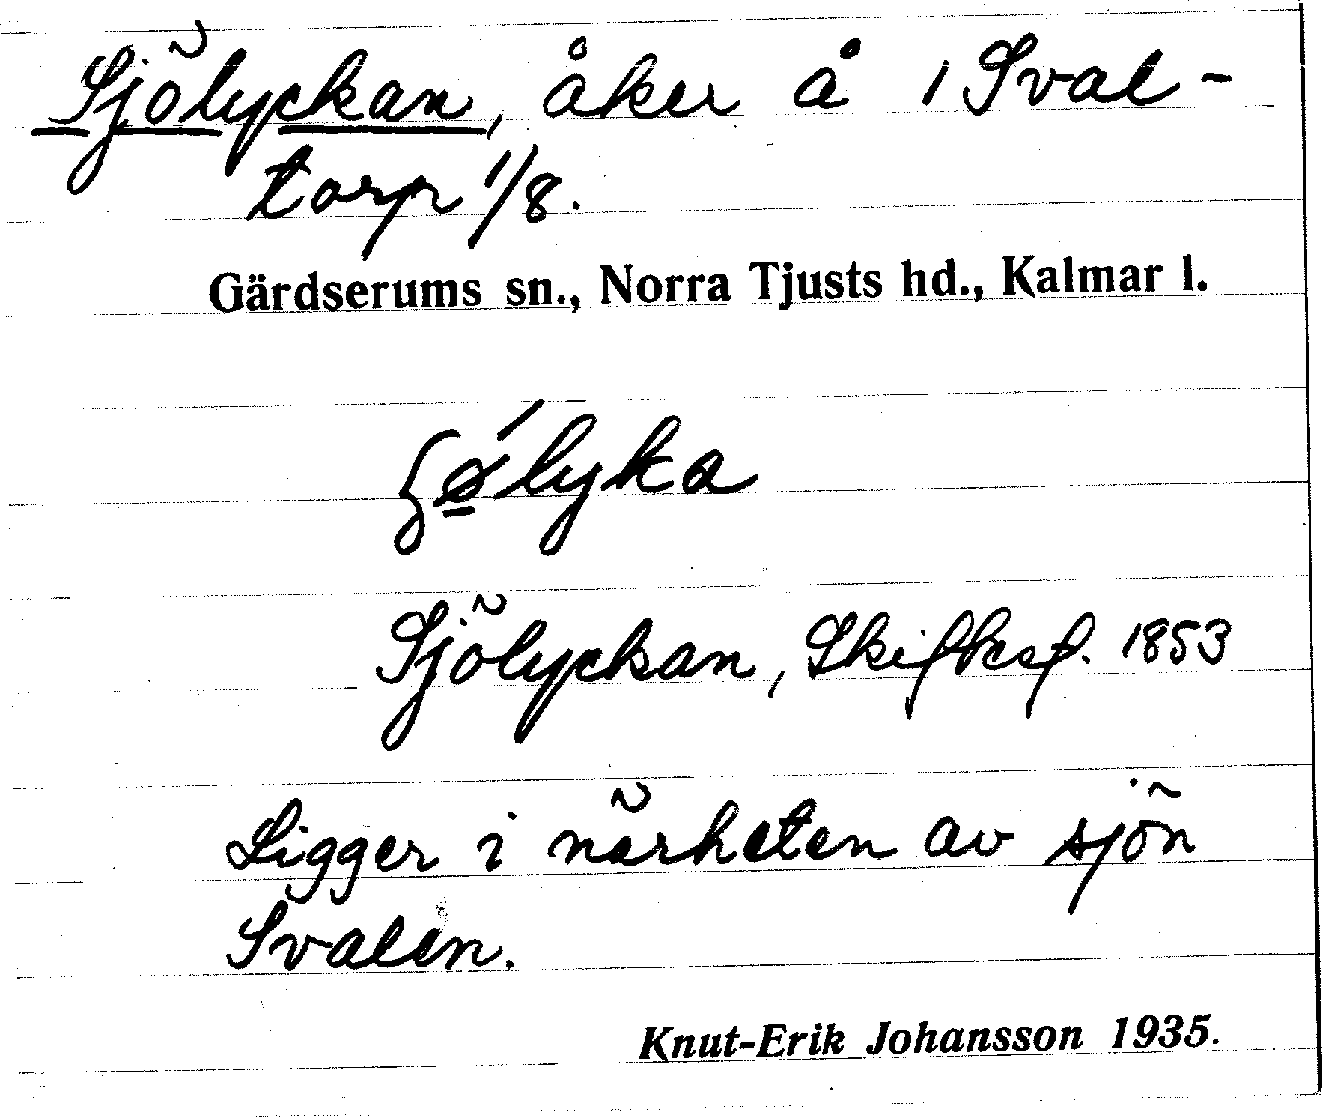 Sjölyckan, åker å 1 Sval-
torp 1/8.
Gärdserums sn., Norra Tjusts hd., Kalmar l.
ʃǿ̱lyka
Sjölyckan, Skifksf. 1853
Ligger i närheten av sjön
Svalen.
Knut-Erik Johansson 1935.